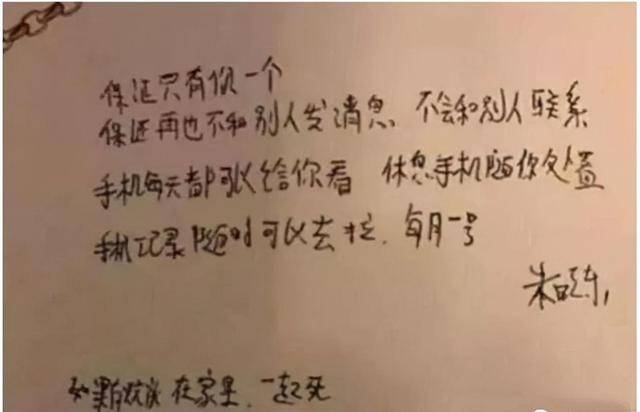 保证只有你一个
保证再也不和别人发消息 不会和别人联系
手机每天都可以给你看 休息手机随你处置
手机记录随时可以去拉，每月一号
朱晓东
如果有炸弹 在家里，一起死